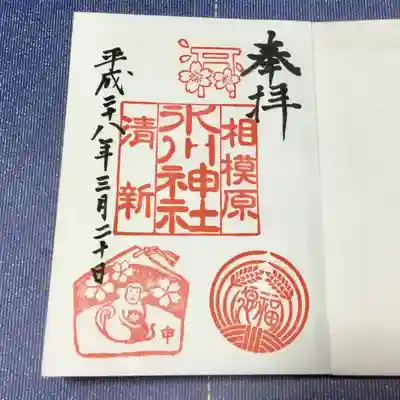 奉拝
相模原
氷川神社
清新
平成二十八年三月二十日
申
福